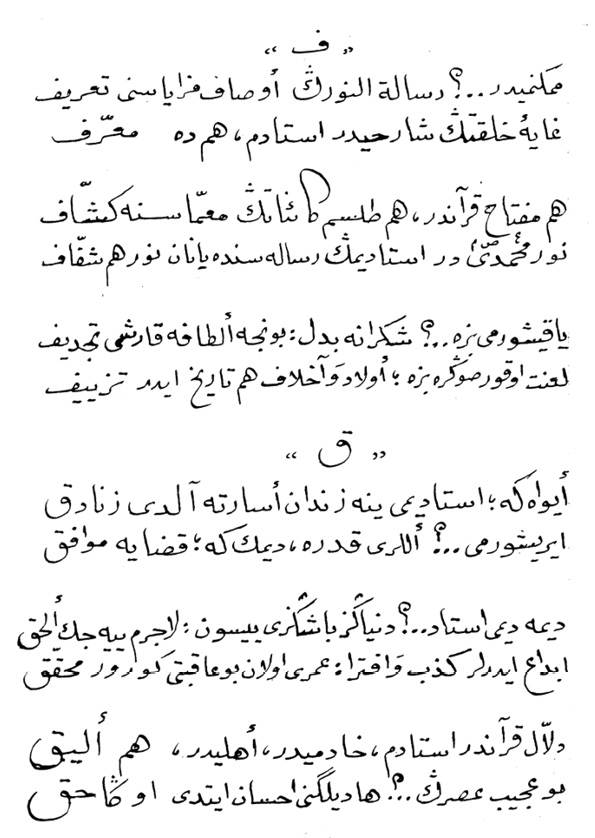 « ف »
ممكنميدر..؟ رسالة النورڭ أوصاف مزاياسنى تعريف
غايۀ خلقتڭ شارحيدر استادم، هم ده معرّف
هم مفتاح قرآندر، هم طلسم كائناتڭ معمّاسنه كشّاف
نور محمّدىّ در استاديمڭ رساله سنده يانان نور هم شفّاف
ياقيشورمى بزه..؟ شكرانه بدل: بونجه ألطافه قارشى تجديف
لعنت اوقور صوڭره بزه ؛ أولاد وَ أخلاف هم تاريخ ايدر تزييف
« ق »
أيواه كه؛ استاديمى ينه زندان أسارته آلدى زنادق
ايريشورمى..؟ أللرى قدره، ديمك كه؛ قضايه موافق
ديمه ديمى استاد..؟ دنياڭز باشڭزى ييسون: لاجرم ييه جك ألحق
ابداع ايدرلر كذب وَ افترا: عمرى اولان بو عاقبتى كورور محقّق
دلاّل قرآندر استادم، خادميدر، أهليدر، هم أليق
بو عجيب عصرڭ..؟ هاديلگنى احسان ايتدى اوڭا حق